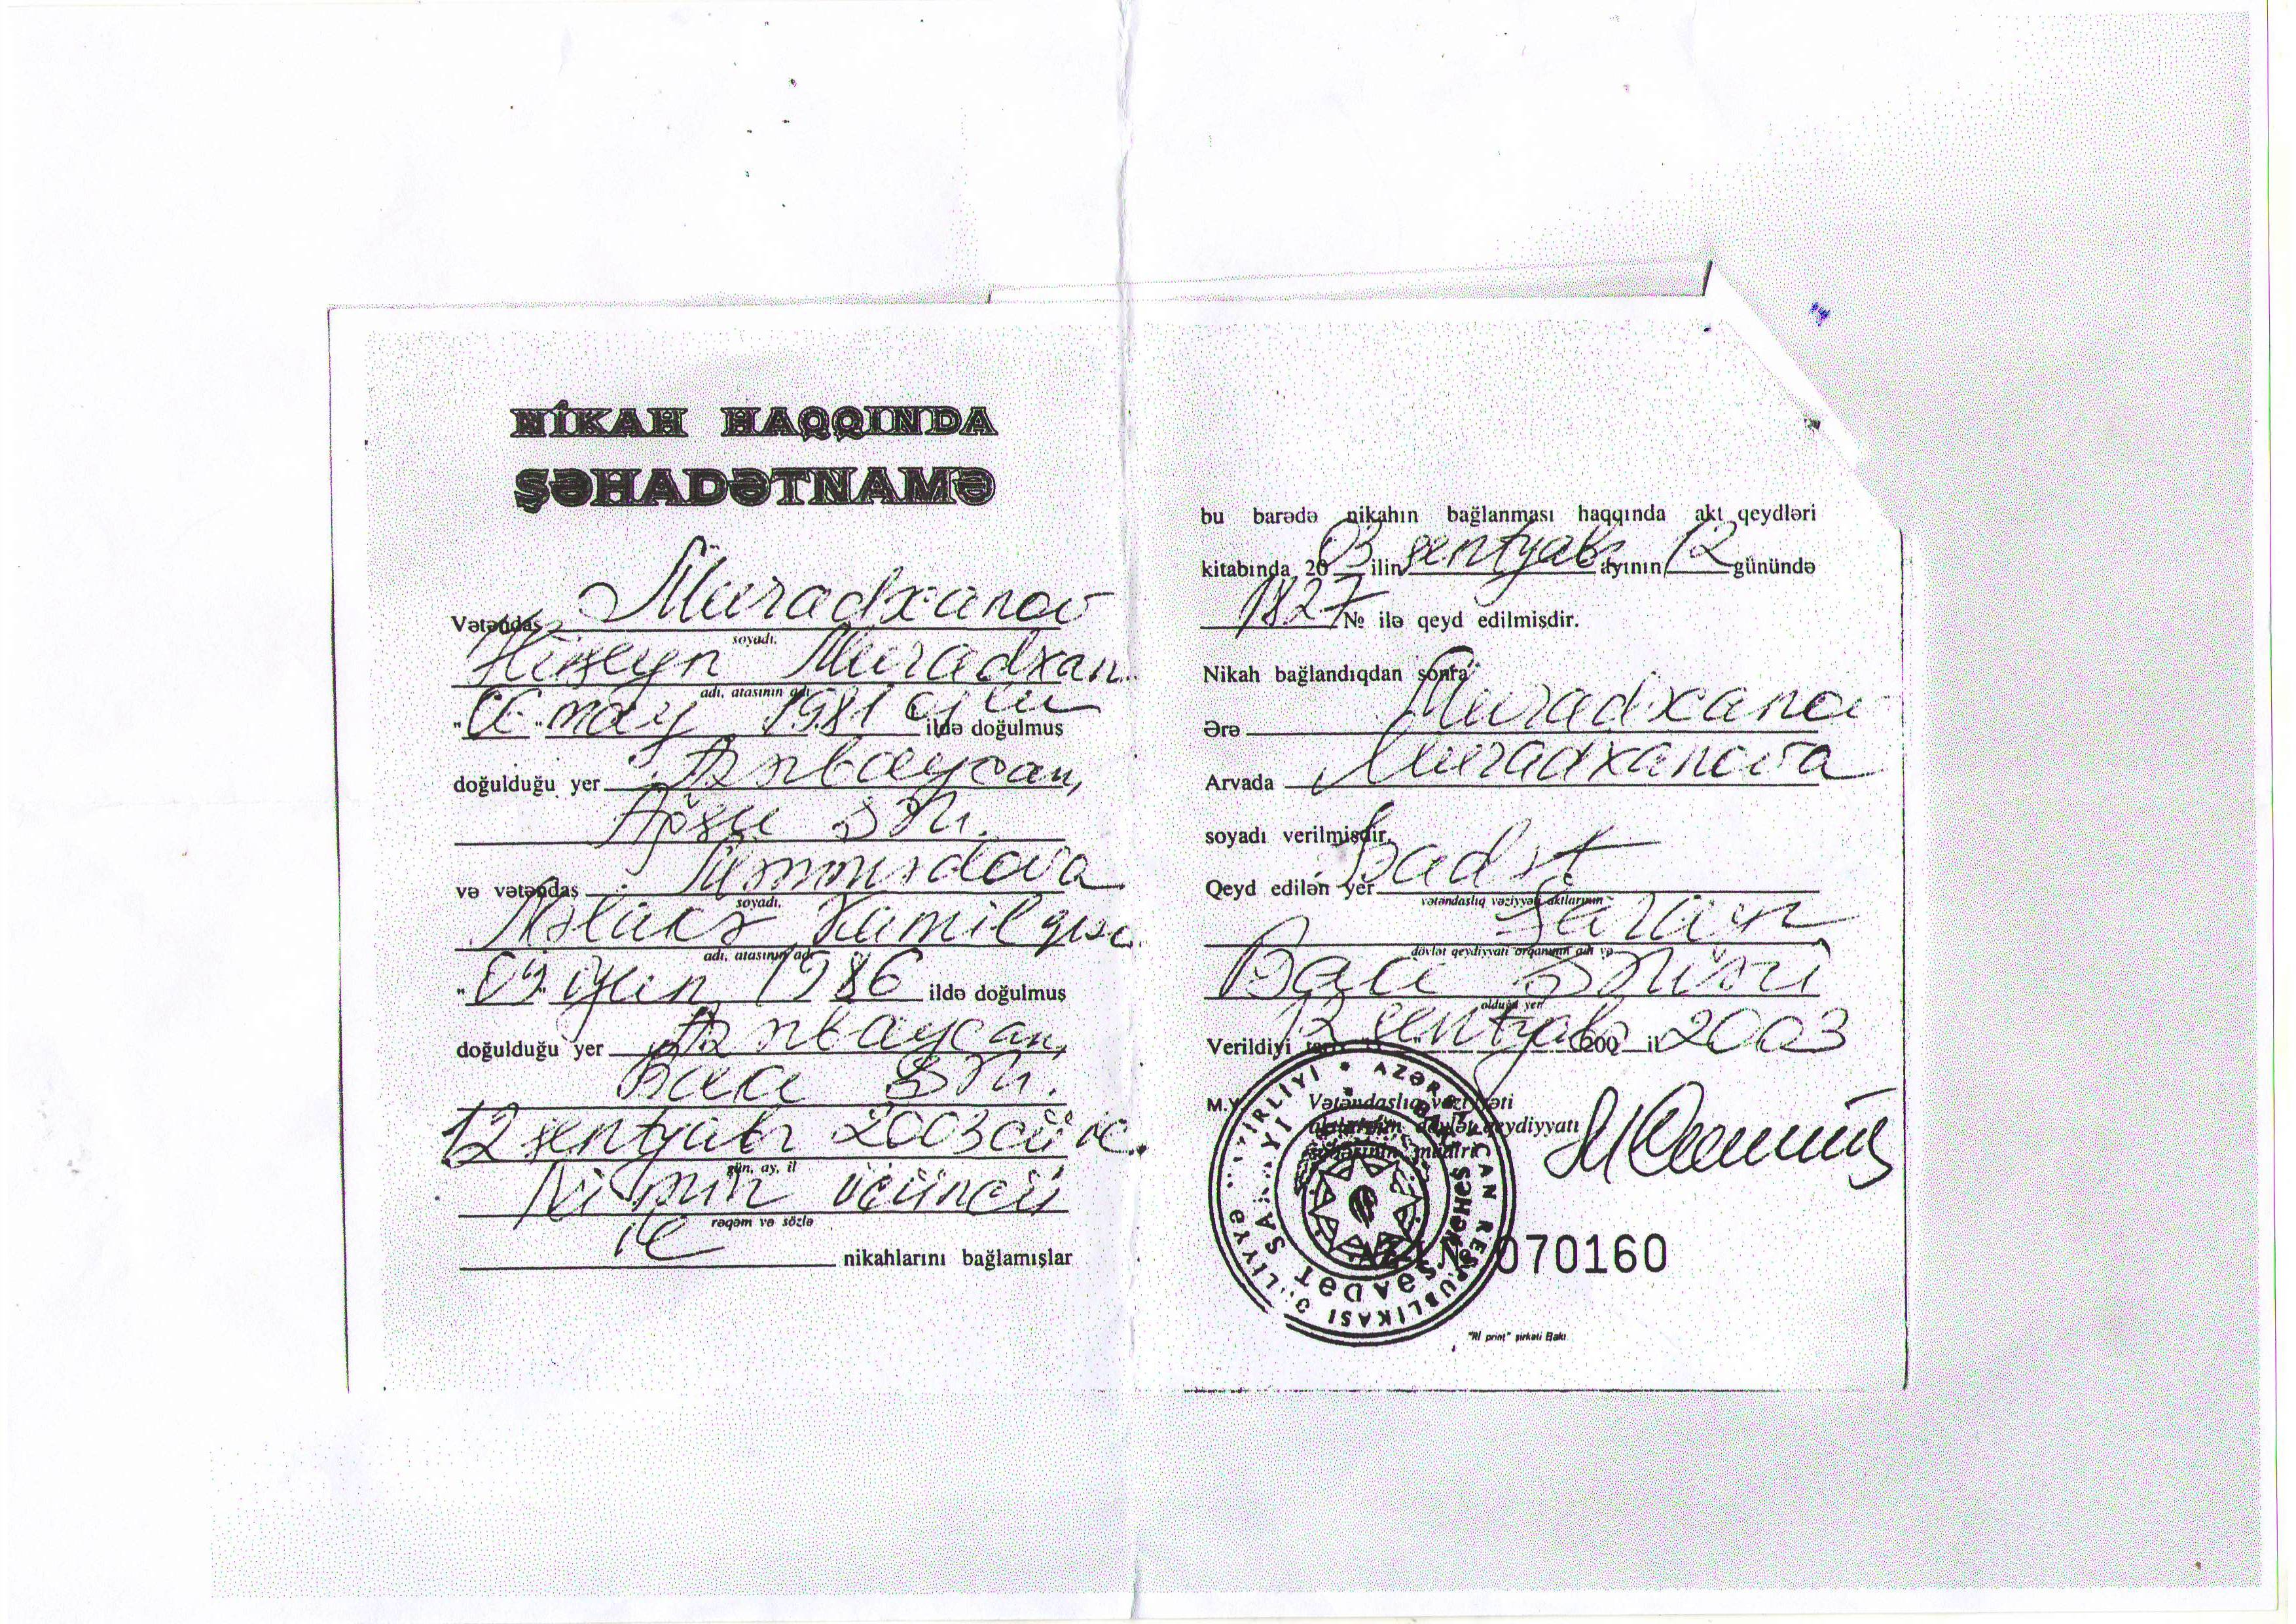 NİKAH HAQQINDA
ŞƏHADƏTNAMƏ
Vətəndaş Muradxanov
soyadı,
Hüseyn Muradxan
adı, atasının adı
oğlu
may 1981 ildə doğulmuş
doğulduğu yer Azərbaycan,
Ağsu şəh.
və vətəndaş Məmmədova
soyadı,
Kamil qızı
adı, atasının adı
"09" iyun 1986 ildə doğulmuş
doğulduğu yer Azərbaycan,
Bakı şəh.
12 sentyabr 2003cü il
gün, ay, il
İki min üçüncü
rəqəm və sözlə
il nikahlarını bağlamışlar
bu barədə nikahın bağlanması haqqında akt qeydləri
kitabında 2003 ilin sentyabr ayının 12 günündə
1827 № ilə qeyd edilmişdir.
Nikah bağlandıqdan sonra
Ərə Muradxanov
Arvada Muradxanova
soyadı verilmişdir.
Qeyd edilən yer Səadət
vətəndaşlıq vəziyyəti aktlarının
Sarayı
dövlət qeydiyyatı orqanının adı və
Bakı şəhəri
olduğu yer
Verildiyi tarix 12 sentyabr 200 il 2003
M.Y. Vətəndaşlıq vəziyyəti
aktlarının dövlət qeydiyyatı
şöbəsinin müdiri
070160
AZƏRBAYCAN RESPUBLİKASI ƏDLİYYƏ NAZİRLİYİ
SƏADƏT SARAYI
"Rİ print" şirkəti Bakı